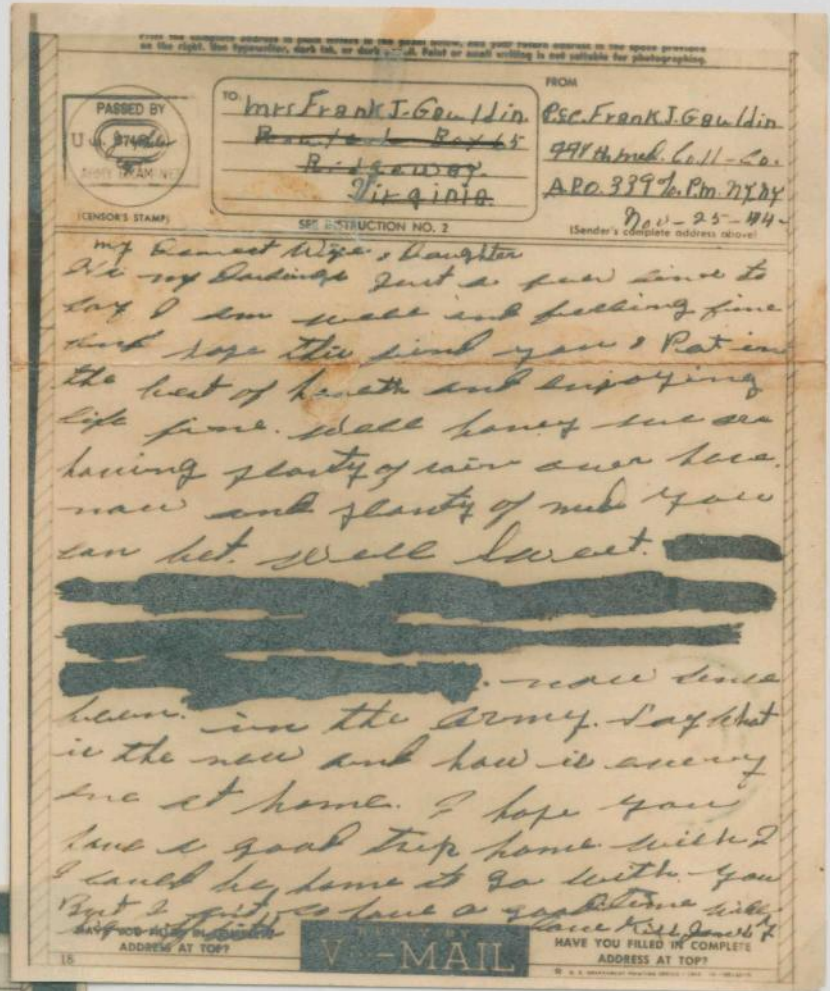 Print the complete address in plain letters in the panel below, and your return address in the space provided
on the right. Use typewriter, dark ink, or dark pencil. Faint or small writing is not suitable for photographing.
PASSED BY
U
ARMY EXAMINER
(CENSOR'S STAMP)
TO:
Mrs Frank J. Gauldin
Box 65
Ridgeway.
Virginia.
SEE INSTRUCTION NO. 2
FROM
Pfc. Frank J. Gauldin
Med. Coll-Co.
A.P.O. 339 % P.M. NY, NY
Nov-25-44-
(Sender's complete address above)
my Dearest Wife & Daughter
Hi my Darlings Just a few lines to
say I am well and feeling fine
and hope this find you & Pat in
the best of health and enjoying
life fine. Well honey we are
having plenty of rain over here.
now and plenty of mud you
can bet. Well Sweet.
. now since
been. in the army. Say What
is the new and how is every
one at home. I hope you
have a good trip home wish I
I could be home to go with you
But I just have a good time
Love Kiss
HAVE YOU FILLED IN COMPLETE
ADDRESS AT TOP?
REPLY BY
V -MAIL
HAVE YOU FILLED IN COMPLETE
ADDRESS AT TOP?
16